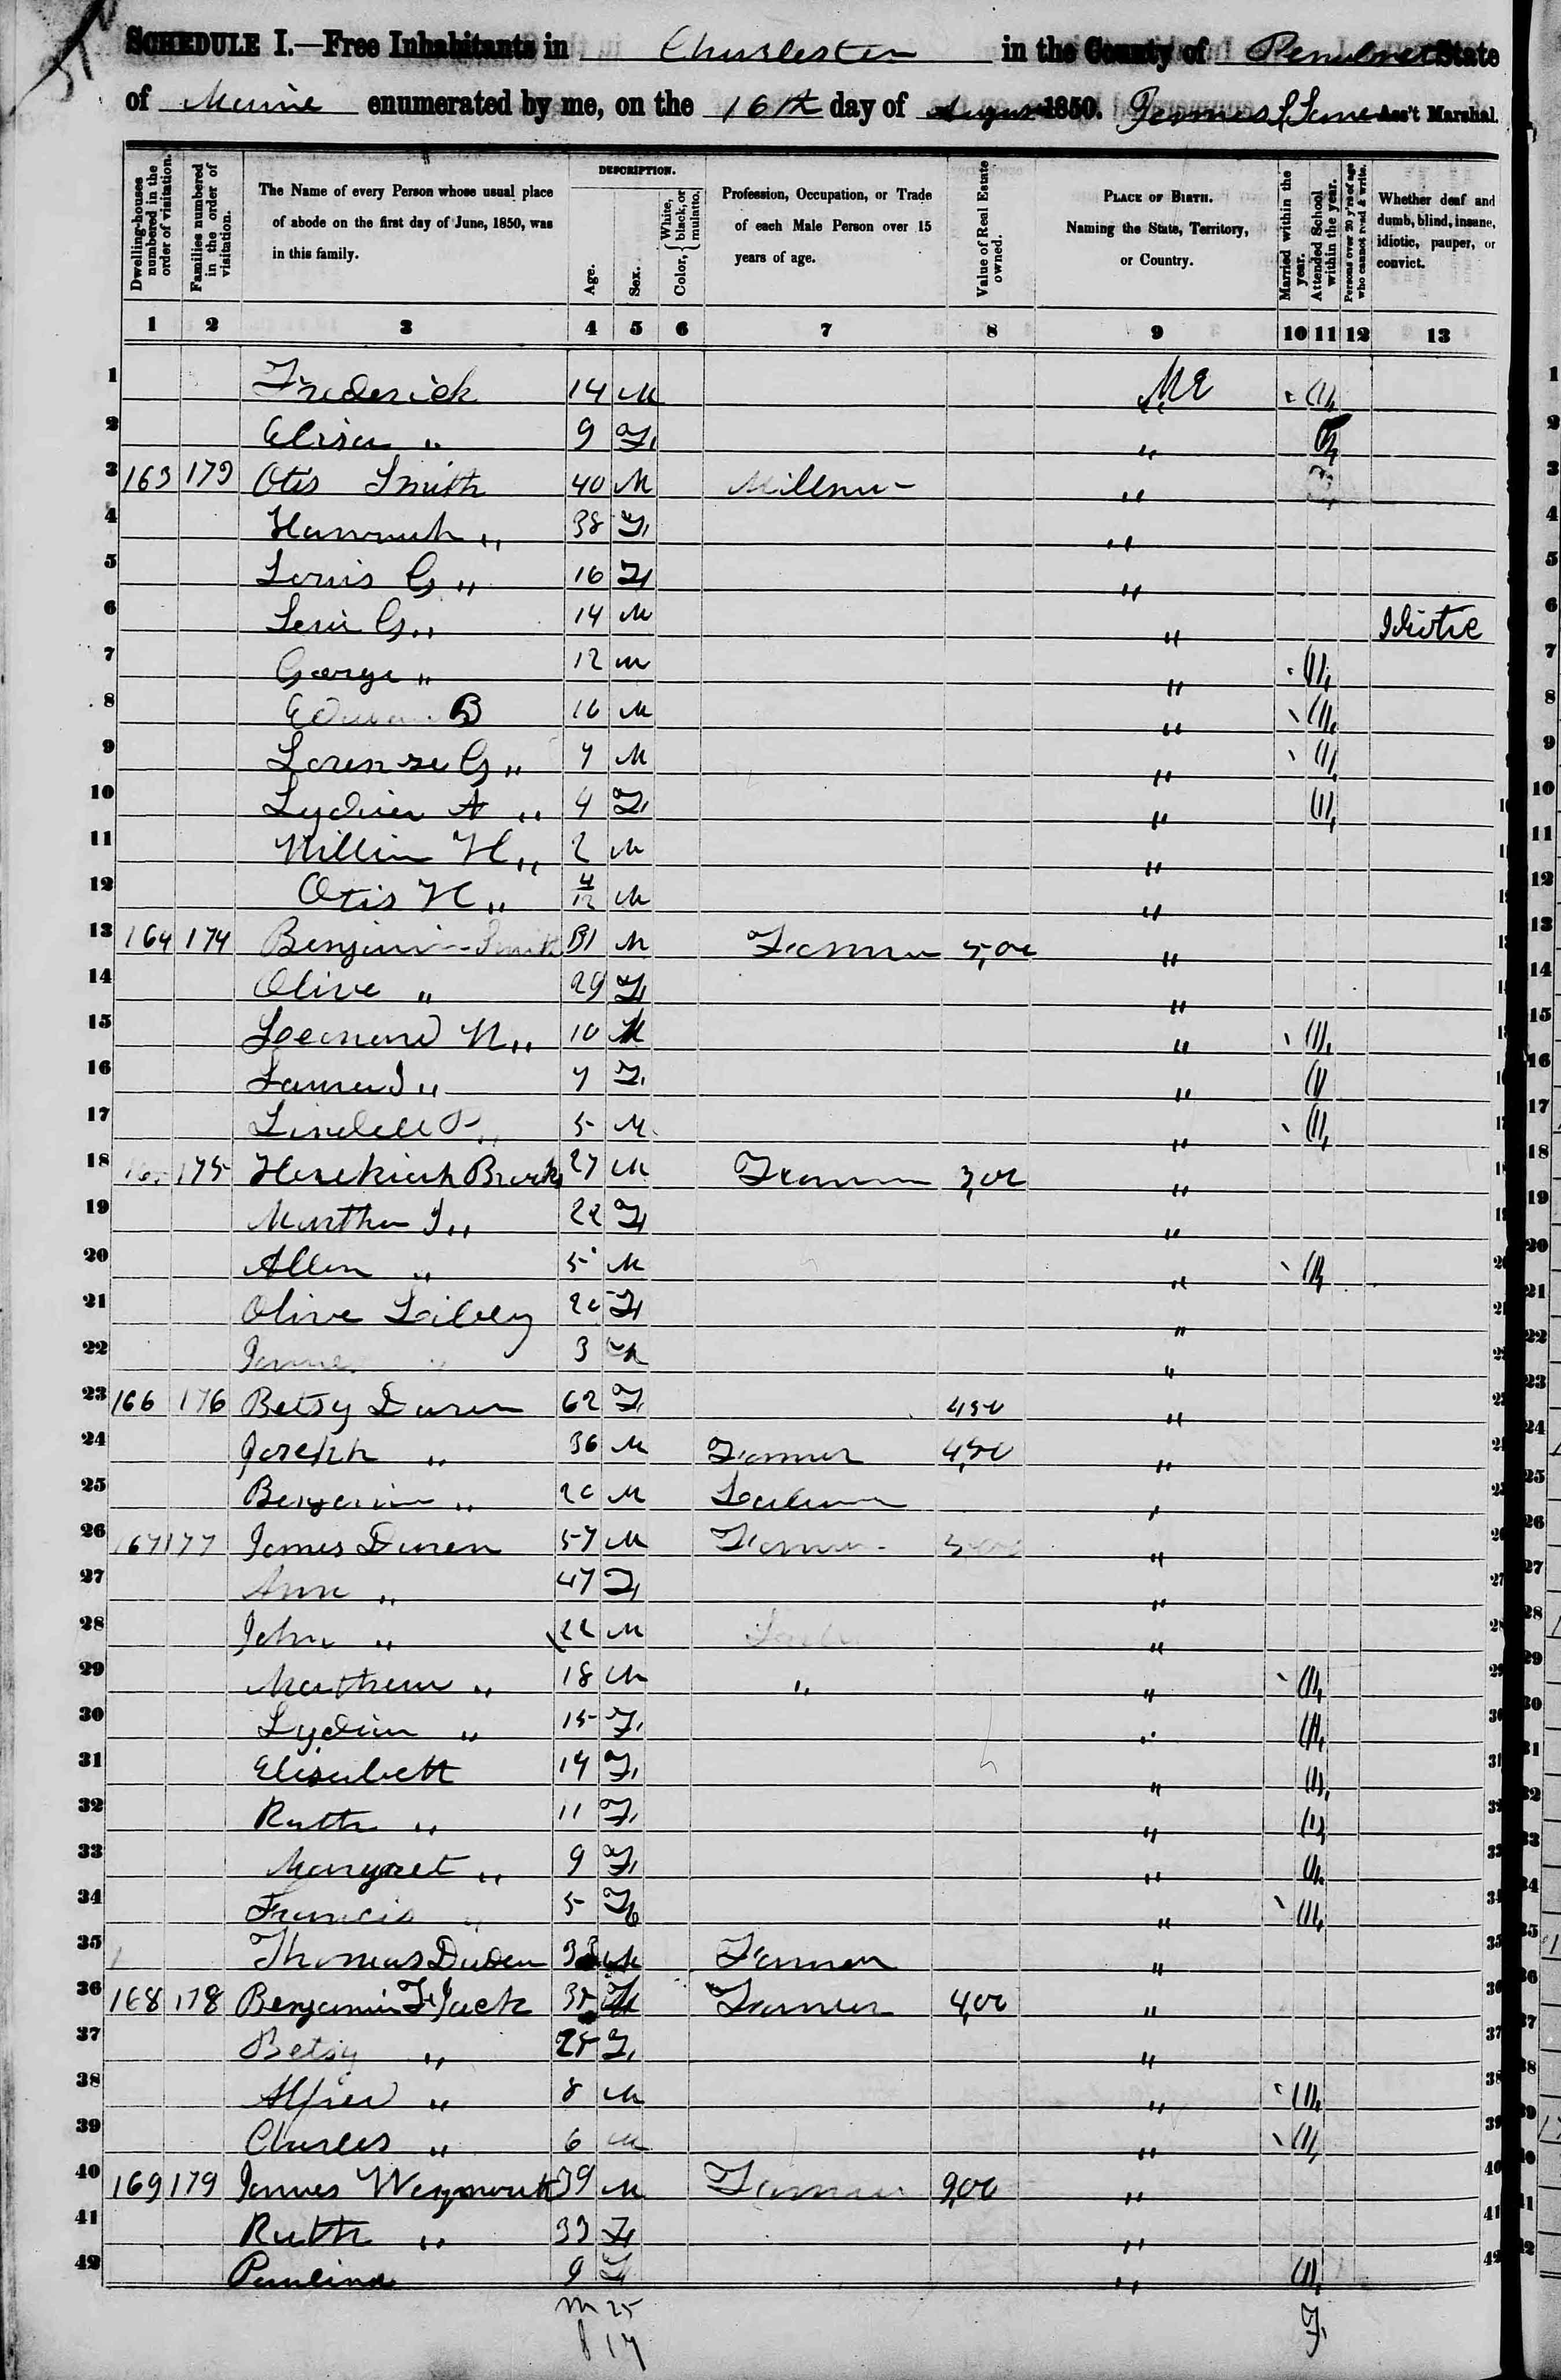 SCHEDULE I.—Free Inhabitants in Charleston in the County of Penobscot State
of Maine enumerated by me, on the 16th day of August 1850. Ass't Marshal.
Dwelling-houses numbered in the order of visitation.
Families numbered in the order of visitation.
The Name of every Person whose usual place of abode on the first day of June, 1850, was in this family.
DESCRIPTION.
Age.
Sex.
Color, { White, black, or mulatto.
Profession, Occupation, or Trade of each Male Person over 15 years of age.
Value of Real Estate owned.
PLACE OF BIRTH. Naming the State, Territory, or Country.
Married within the year.
Attended School within the year.
Persons over 20 y'rs of age who cannot read & write.
Whether deaf and dumb, blind, insane, idiotic, pauper, or convict.
1 2 3 4 5 6 7 8 9 10 11 12 13
1 Frederick 14 M ME
2 Elisa " 9 F "
3 163 173 Otis Smith 40 M "
4 Hannah " 38 F "
5 G " 16 F "
6 G " 14 M " Idiotic
7 George " 12 M "
8 B M "
9 Lorenzo G " 7 M "
10 Lydia A " 4 F "
11 H " 2 M "
12 Otis H " 4/12 M "
13 164 174 Benjamin Smith 31 M Farmer 500 "
14 Olive " 29 F "
15 Leonard N " 10 M "
16 Laura J " 7 F "
17 5 M "
18 175 Hezekiah 27 M Farmer 300 "
19 Martha J " 22 F "
20 Allen " 5 M "
21 Olive Libby F "
22 3 M "
23 166 176 Betsy Duren 62 F 450 "
24 Joseph " 36 M Farmer 450 "
25 Benjamin " 20 M "
26 167 177 James Duren 57 M Farmer "
27 Ann " 47 F "
28 John " 22 M "
29 Mathew " 18 M " "
30 Lydia " 15 F "
31 Elisabeth 14 F "
32 Ruth " 11 F "
33 Margret " 9 F "
34 Francis " 5 "
35 Thomas Duren M Farmer "
36 168 178 Benjamin F Jack 35 M Farmer 400 "
37 Betsy " 25 F "
38 Alfred " 8 M "
39 Charles " 6 M "
40 169 179 James Weymouth 39 M Farmer 900 "
41 Ruth " 33 F "
42 Paulina 9 F "
m 25
f 17